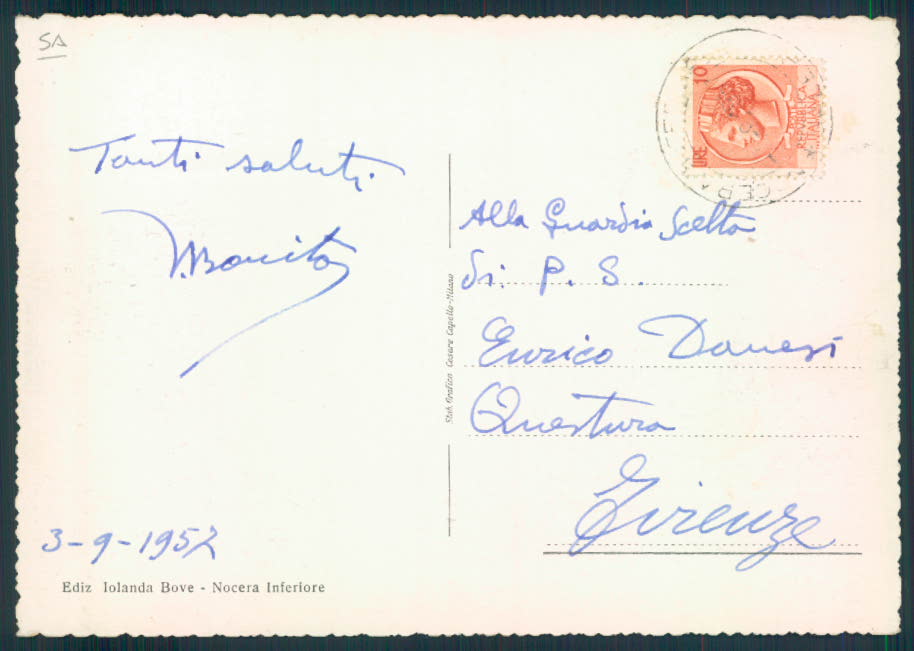 SA
Tanti saluti
10
LIRE
POSTE
REPVBBLICA
ITALIANA
Alla Guardia Scelta
di P. S.
Enrico Danesi
Questura
Firenze
Stab. Grafico Cesare Capello - Milano
3-9-1957
Ediz Iolanda Bove - Nocera Inferiore